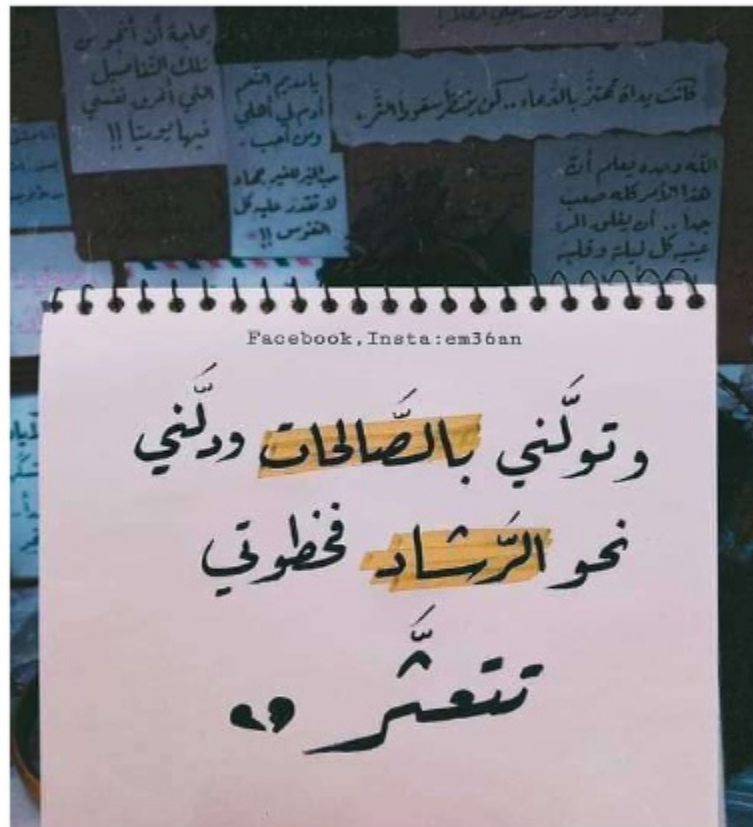 بحاجة أن أنجو من
تلك التفاصيل
التي أغرق نفسي
فيها يوميًا !!
يا مديم النعم
أدم لي أهلي
ومن أحب .
لا تقدر عليه كل
النفوس !!
كانت يداه تهتزُّ بالدُّعاء .. كمن ينتظر سقوط الثَّمر
الله وحده يعلم أنَّ
هذا الأمر كله صعب
جدا .. أن يغلق المرء
عينيه كل ليلة وقلبه
Facebook,Insta:em36an
وتولَّني بالصَّالحات ودلَّني
نحو الرَّشاد فخطوتي
تتعثَّر